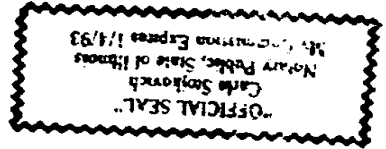 "OFFICIAL SEAL"
Carla Stojkovich
Notary Public, State of Illinois
My Commission Expires 1/4/93